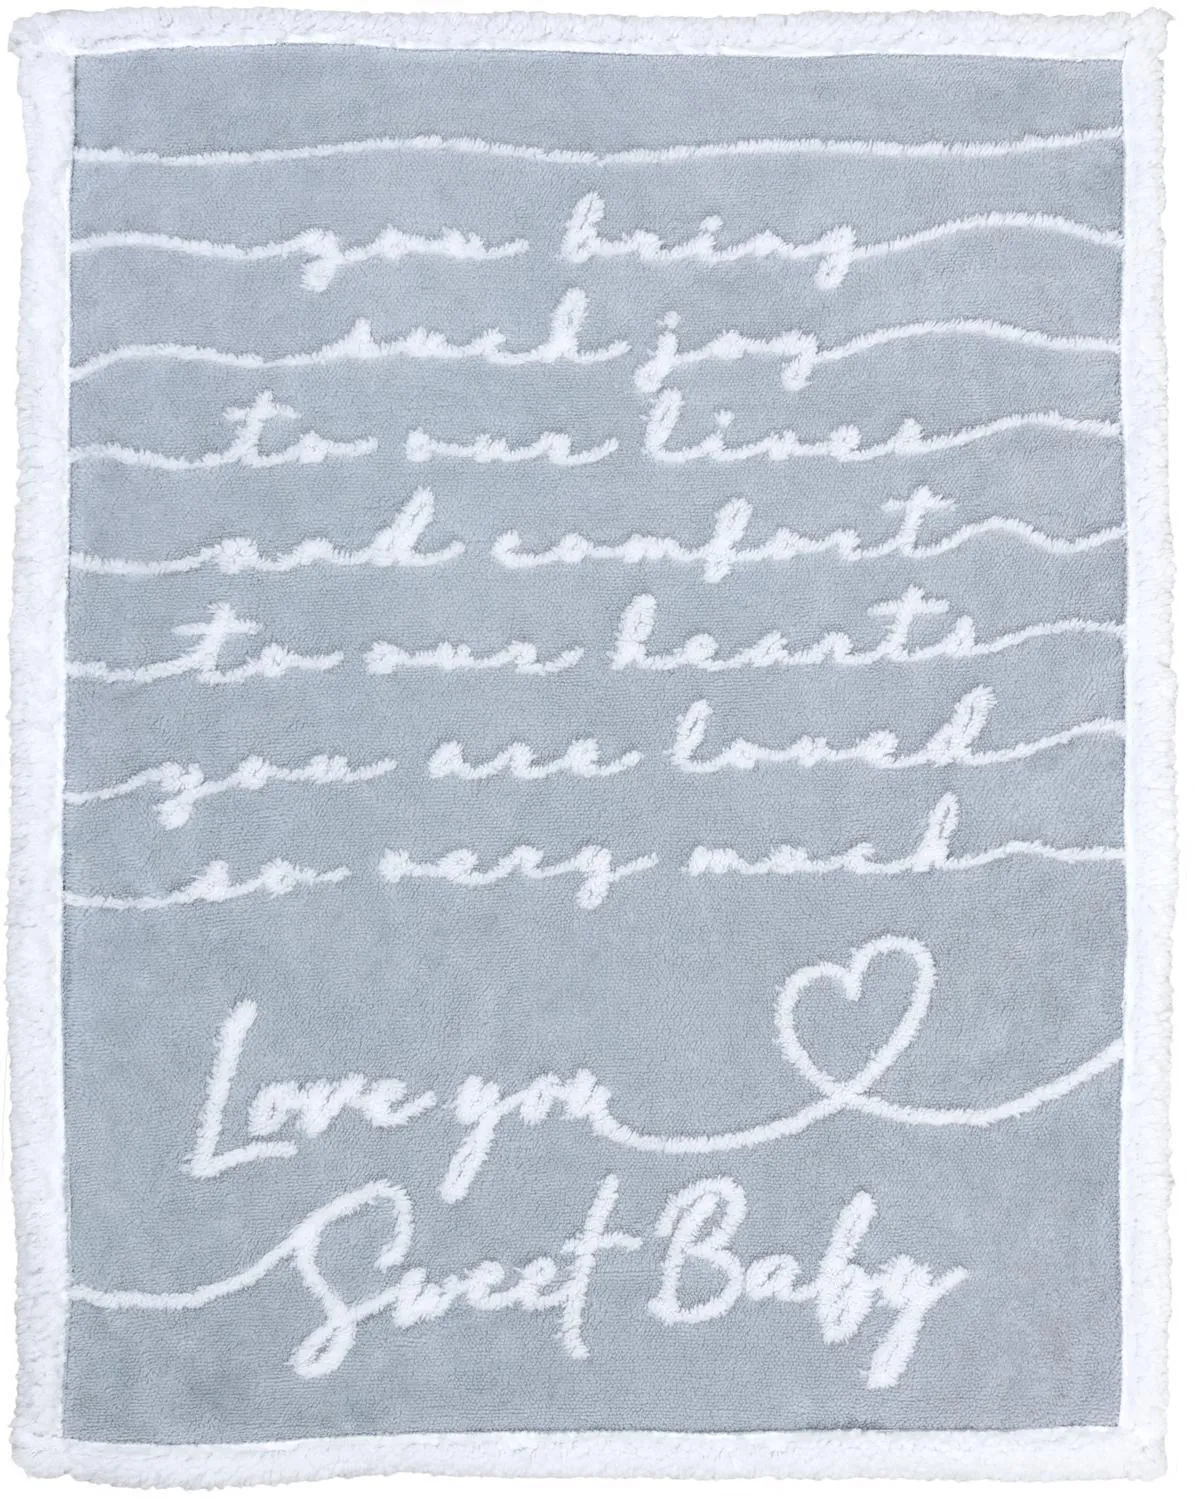 you bring
such joy
to our lives
and comfort
to our hearts
you are loved
so very much
Love you
Sweet Baby